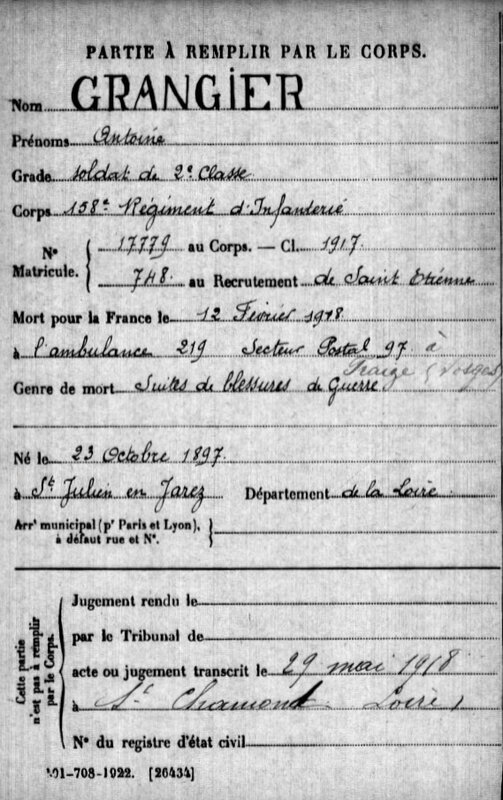 PARTIE À REMPLIR PAR LE CORPS.
Nom GRANGIER
Prénoms Antoine
Grade soldat de 2e Classe
Corps 158e Régiment d'Infanterie
N° Matricule. { 17779 au Corps. — Cl. 1917.
748. au Recrutement de Saint Etienne
Mort pour la France le 12 Février 1918
à l'ambulance 219 Secteur Postal 97 à
Fraize (Vosges)
Genre de mort Suites de blessures de Guerre
Né le 23 Octobre 1897.
à St Julien en Jarez Département de la Loire.
Arrt municipal (pr Paris et Lyon), à défaut rue et N°. }
Cette partie n'est pas à remplir par le Corps. {
Jugement rendu le
par le Tribunal de
acte ou jugement transcrit le 29 mai 1918
à St Chamond Loire)
N° du registre d'état civil
101-708-1922. [26434]